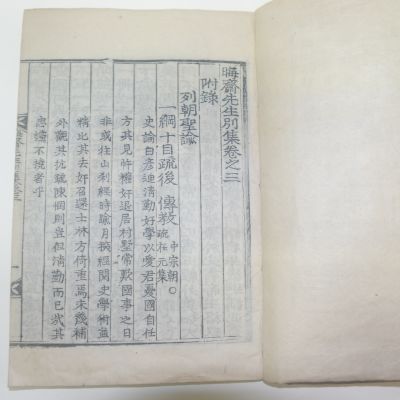 晦齋先生別集卷之三
附錄
列朝聖諭
一綱十目疏後 傳教 中宗朝○疏在元集
史論曰彦迪清勤好學以愛君憂國自任
方其見忤權奸退居村墅常數國事之日
非或往山刹經時踰月探經閱史學術益
精比其去奸召還士林方倚重焉未幾補
外觀其抗疏陳個則豈但清勤而已哉其
忠讜不撓者乎